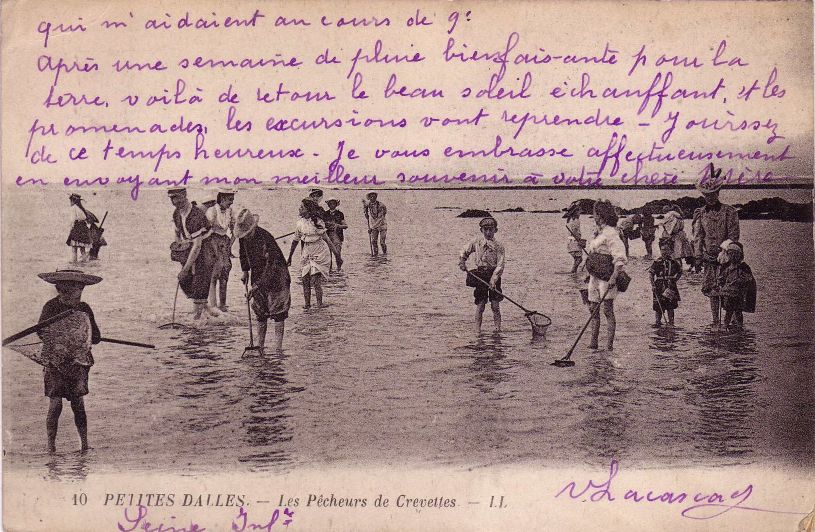 qui m'aidaient au cours de 9e
Après une semaine de pluie bienfais-ante pour la
terre, voilà de retour le beau soleil échauffant, et les
promenades, les excursions vont reprendre - Jouissez
de ce temps heureux - Je vous embrasse affectueusement
en envoyant mon meilleur souvenir à votre chère
10 PETITES DALLES. - Les Pêcheurs de Crevettes. - LL
Seine Infre